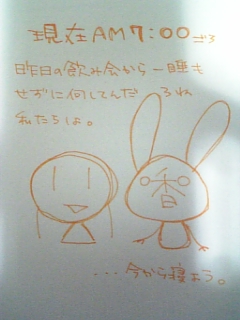 現在AM7:00ごろ
昨日の飲み会から一睡も
せずに何してんだろね
私たちは。
香
...今から寝よう。